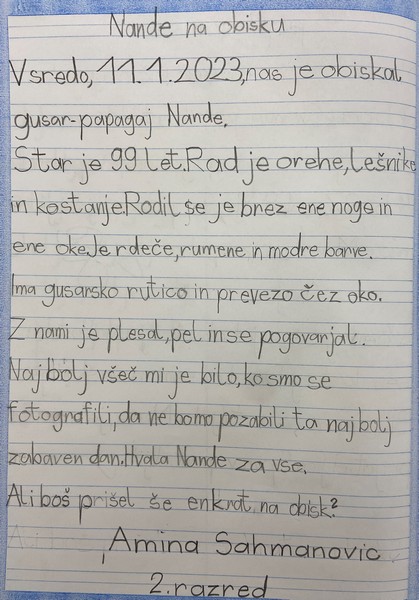 Nande na obisku
V sredo, 11.1.2023, nas je obiskal
gusar-papagaj Nande.
Star je 99 let. Rad je orehe, lešnike
in kostanje. Rodil se je brez ene noge in
ene oke. Je rdeče, rumene in modre barve.
Ima gusarsko rutico in prevezo čez oko.
Z nami je plesal, pel in se pogovarjal.
Najbolj všeč mi je bilo, ko smo se
fotografili, da ne bomo pozabili ta najbolj
zabaven dan. Hvala Nande za vse.
Ali boš prišel še enkrat na obisk?
Amina Sahmanovic
2. razred